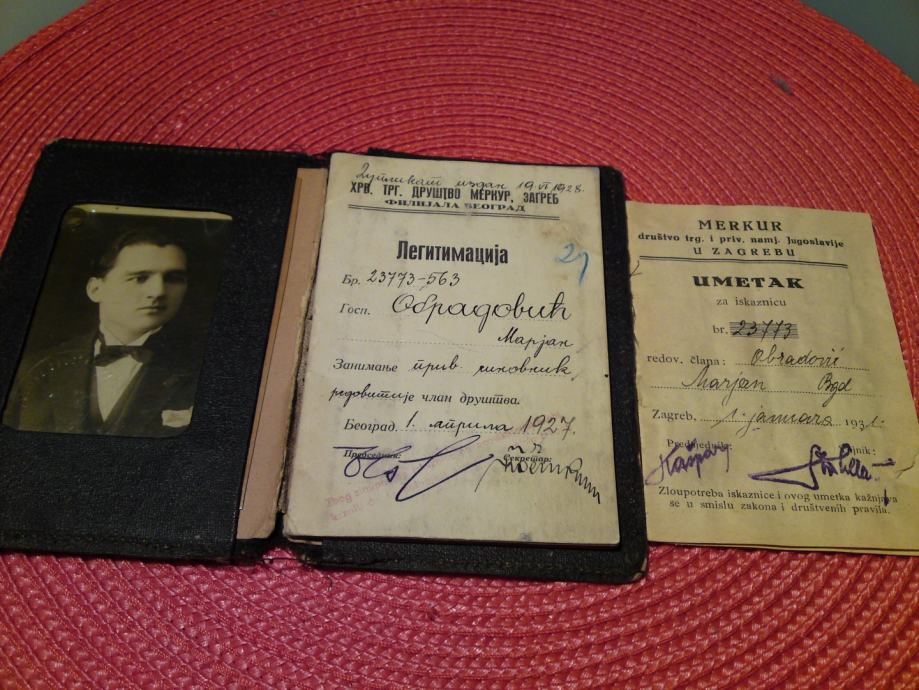 Дупликат издан 19. VI 1928.
ХРВ. ТРГ. ДРУШТВО МЕРКУР, ЗАГРЕБ
ФИЛИЈАЛА БЕОГРАД
Легитимација
Бр. 23773-563
Госп. Обрадовић
Марјан
Занимање прив. чиновник,
редовитије члан друштва.
Београд, 1. априла 1927.
Председник: Секретар:
MERKUR
društvo trg. i priv. namj. Jugoslavije
U ZAGREBU
UMETAK
za iskaznicu
br. 23773
redov. člana: Obradović
Marjan Bgd
Zagreb, 1. januara 1931.
Predsjednik:
Zloupotreba iskaznice i ovog umetka kažnjava
se u smislu zakona i društvenih pravila.